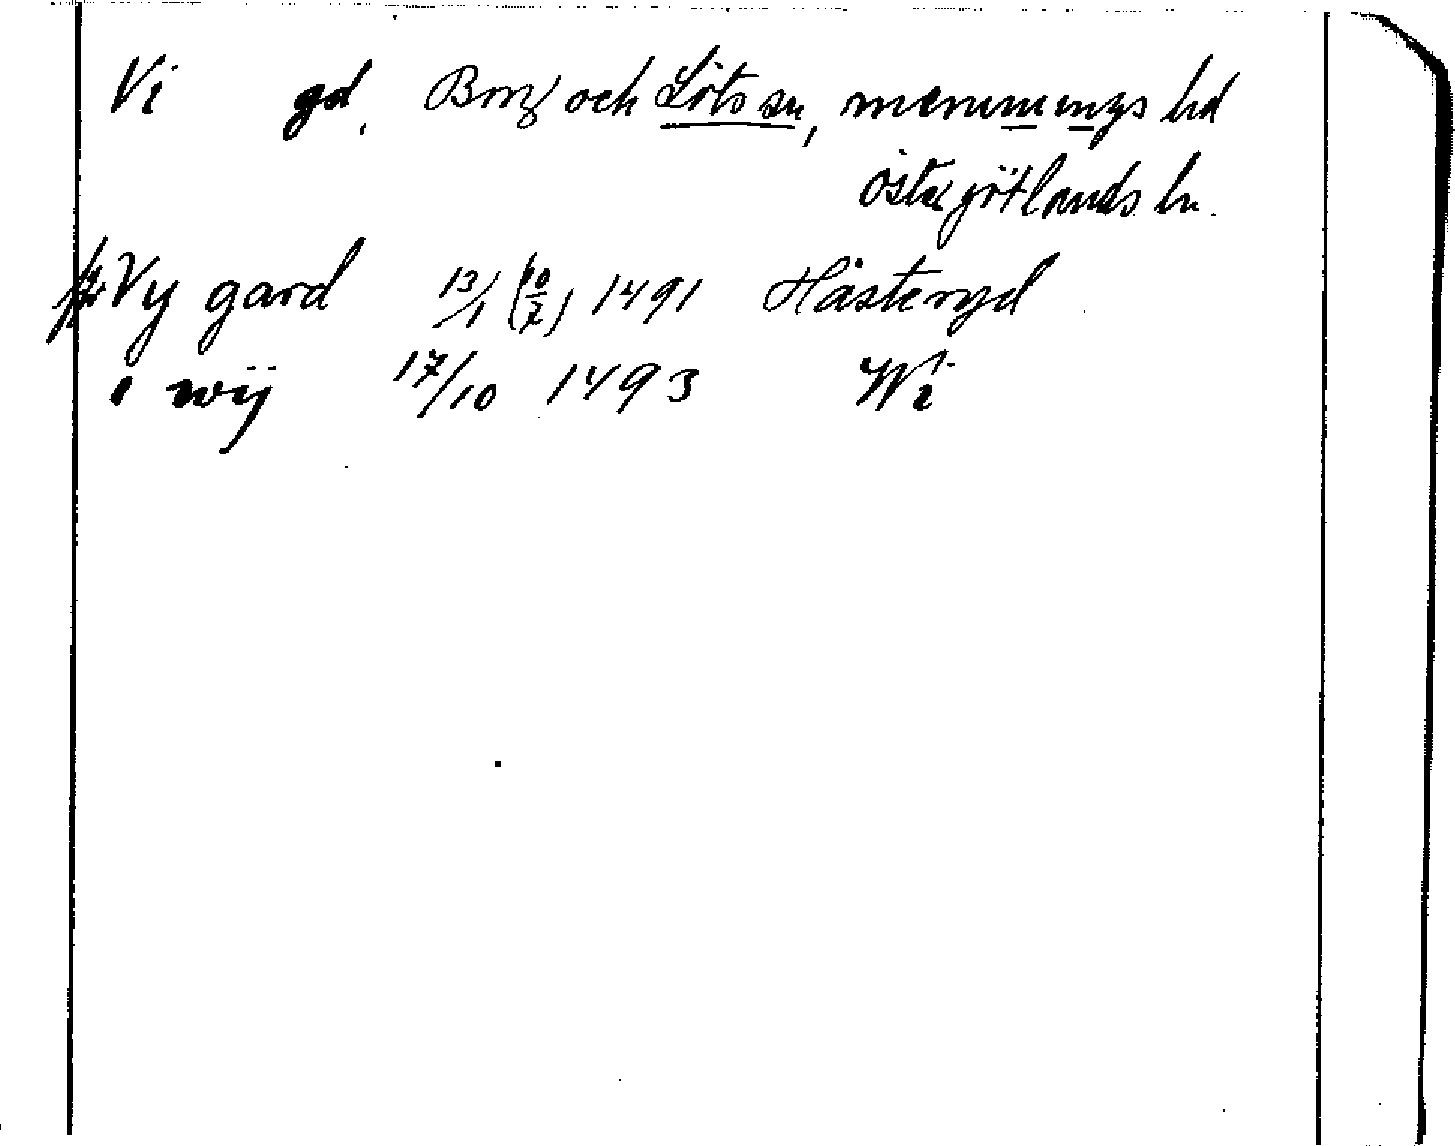 Vi gd, Borg och Löts sn, memmings hd
Östergötlands ln.
Vy gard 13/1 (10/2) 1491 Hästeryd
i wij 17/10 1493 Wi